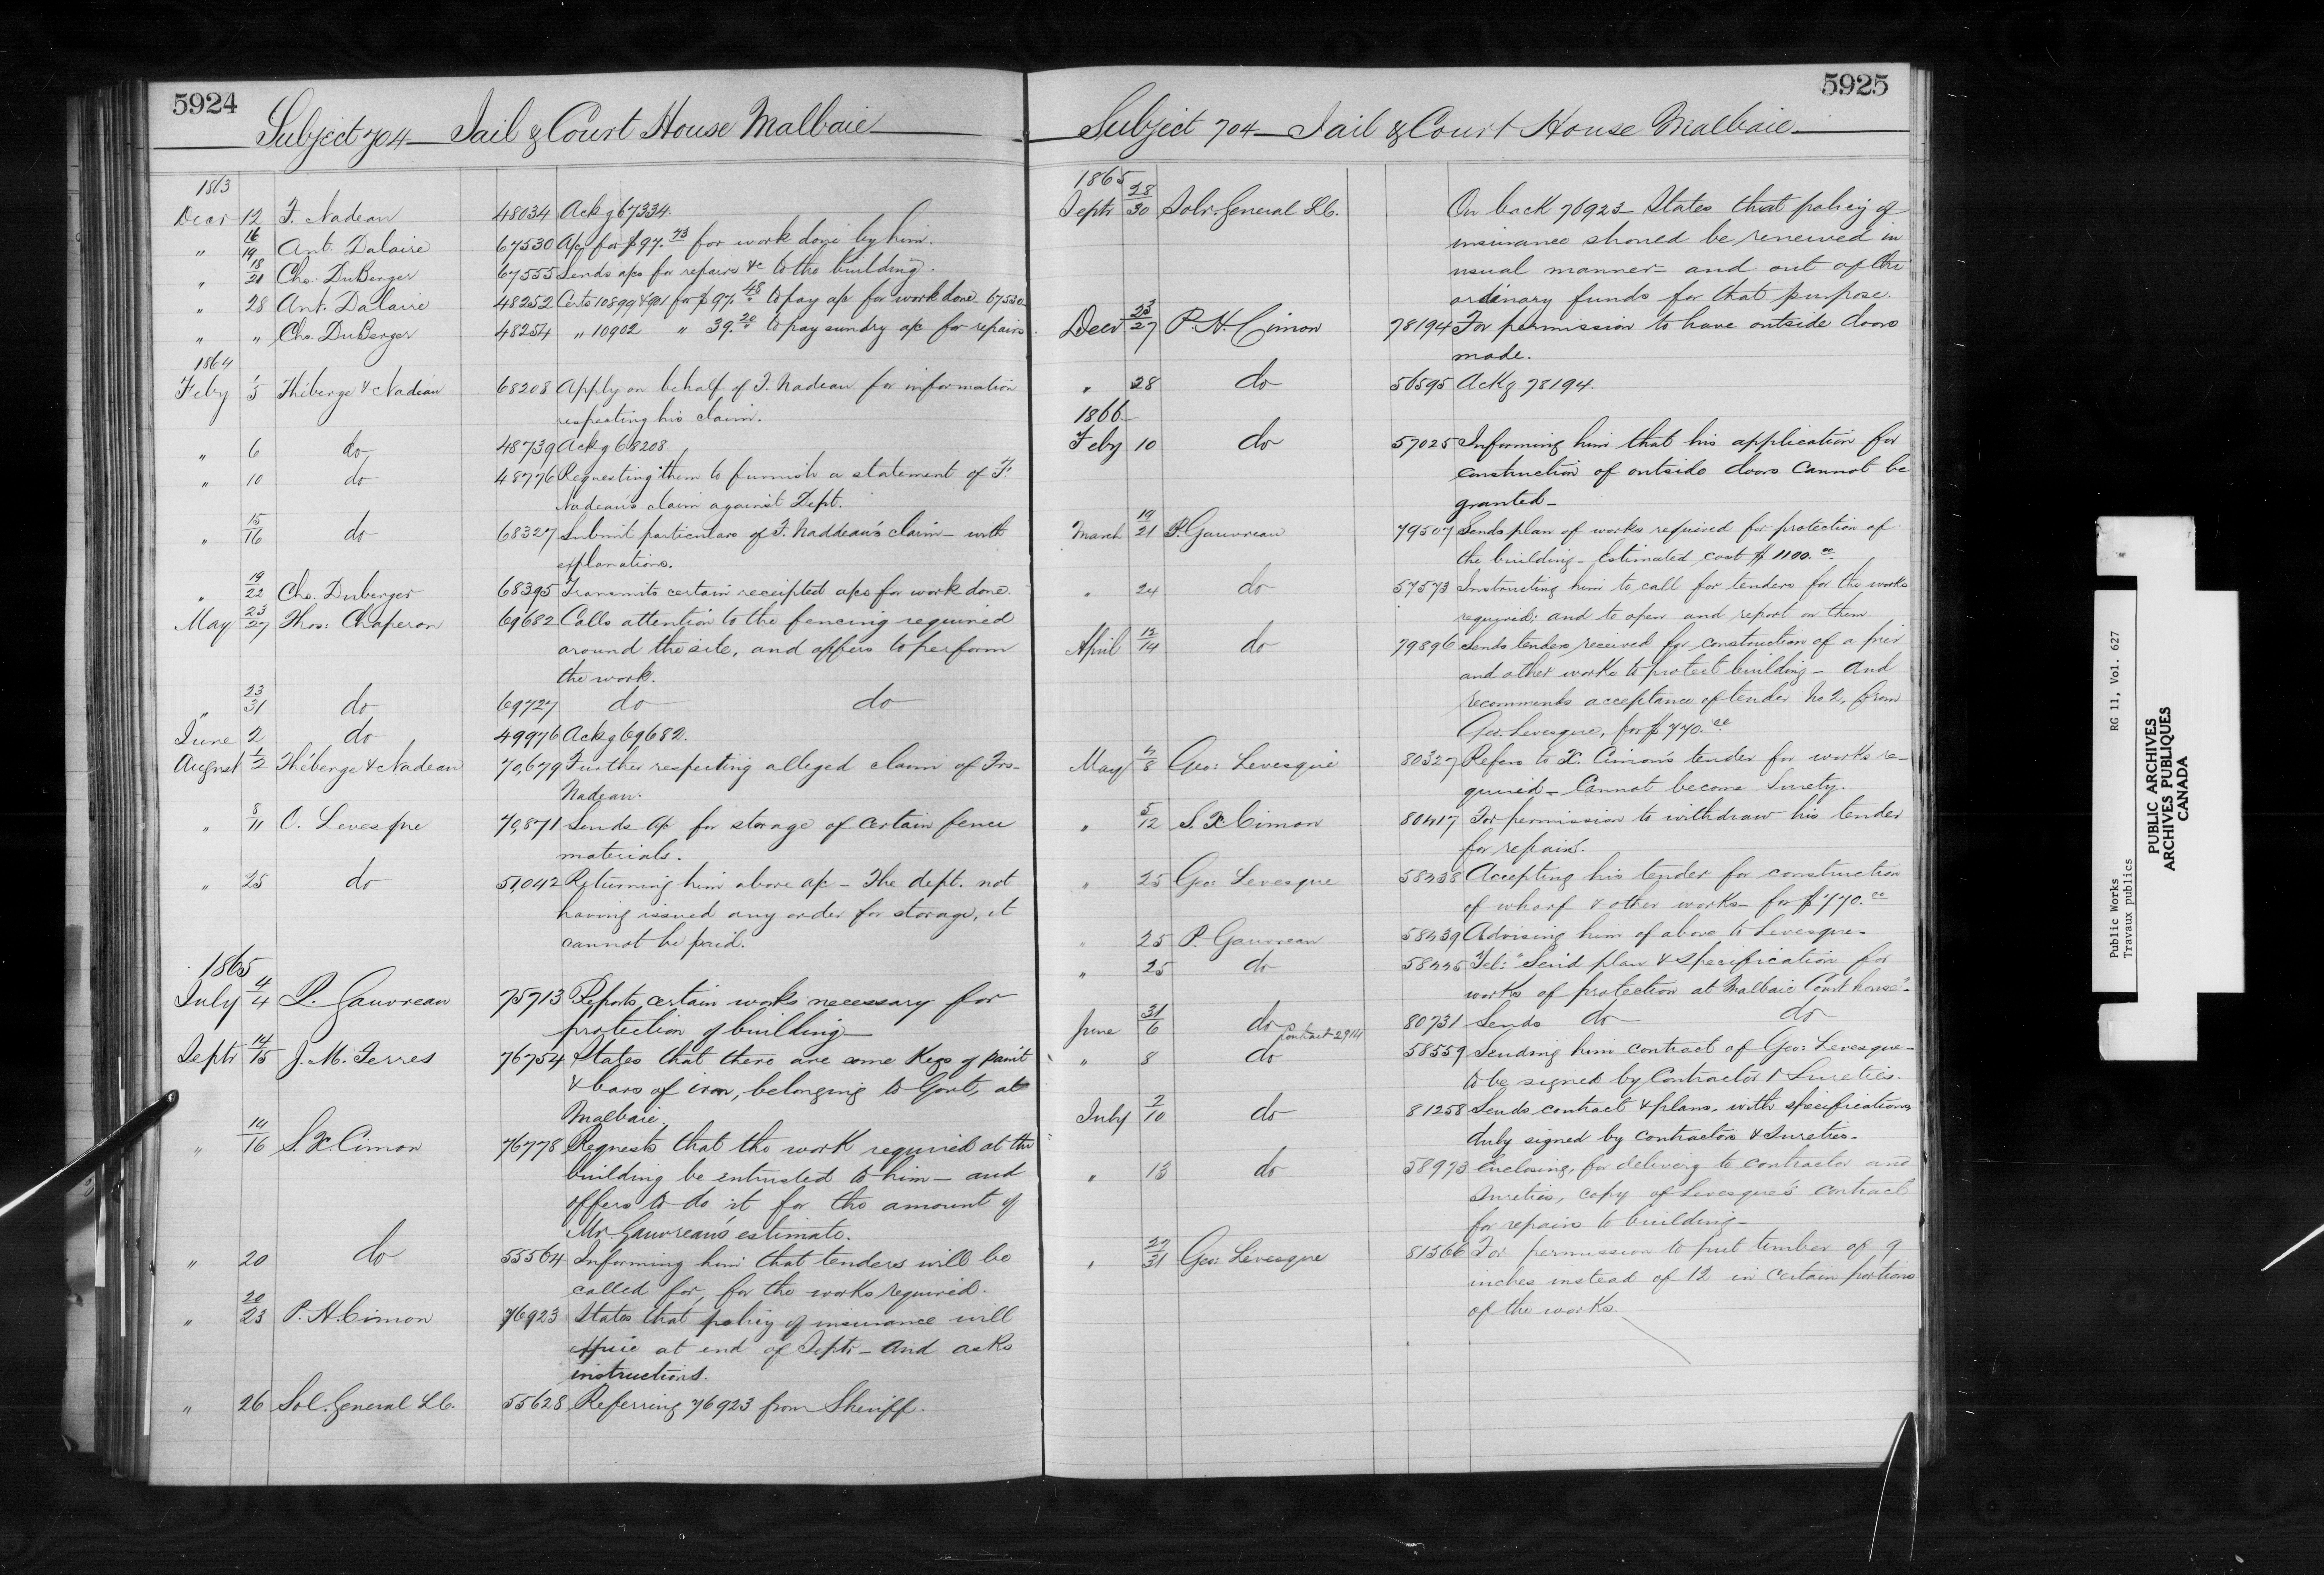 5924
Subject 704 — Jail & Court House Malbaie
1863
Decr 12 F. Nadeau 48034 Ackg 67334
" 16/19 Ant. Dalaire 67530 A/c for $97.73 for work done by him.
" 18/21 Chs. DuBerger 67555 Sends a/cs for repairs &c to the building.
" 28 Ant. Dalaire 48252 Certs 10899 & 901 for $97.48 to pay a/c for work done 67530
" " Chs. DuBerger 48254 " 10902 " 39.20 to pay sundry a/c for repairs.
1864
Feby 1/3 Théberge & Nadeau 68208 Apply on behalf of F. Nadeau for information
respecting his claim.
" 6 do 48739 Ackg 68208
" 10 do 48776 Requesting them to furnish a statement of F.
Nadeau's claim against Dept.
" 15/16 do 68327 Submit particulars of F. Naddeau's claim — with
explanations.
" 19/22 Chs. Duberger 68395 Transmits certain receipted a/cs for work done.
May 23/27 Thos: Chaperon 69682 Calls attention to the fencing required
around the site, and offers to perform
the work.
" 23/31 do 69727 do do
June 2 do 49976 Ackg 69682.
August 1/2 Théberge & Nadeau 70,679 Further respecting alleged claim of Frs.
Nadeau.
" 8/11 C. Levesque 70,871 Sends a/c for storage of certain fence
materials.
" 25 do 51,042 Returning him above a/c — The dept. not
having issued any order for storage, it
cannot be paid.
1865
July 4/4 P. Gauvreau 75713 Reports certain works necessary for
protection of building —
Septr 14/15 J. M. Ferres 76754 States that there are some Kegs of paint
& bars of iron, belonging to Govt, at
Malbaie.
" 14/16 S. X. Cimon 76778 Requests that the work required at the
building be entrusted to him — and
offers to do it for the amount of
Mr. Gauvreau's estimate.
" 20 do 55564 Informing him that tenders will be
called for, for the works required.
" 20/23 P. H. Cimon 76923 States that policy of insurance will
expire at end of Septr — and asks
instructions.
" 26 Sol. General L.C. 55628 Referring 76923 from Sheriff.
5925
Subject 704 — Jail & Court House Malbaie —
1865
Septr 28/30 Solr. General L.C. On back 76923 States that policy of
insurance should be renewed in
usual manner — and out of the
ordinary funds for that purpose.
Decr 23/27 P. H. Cimon 78194 For permission to have outside doors
made.
" 28 do 56595 Ackg 78194.
1866
Feby 10 do 57025 Informing him that his application for
construction of outside doors cannot be
granted —
March 19/21 P. Gauvreau 79507 Sends plan of works required for protection of
the building — Estimated cost $1100.
" 24 do 57573 Instructing him to call for tenders for the works
required; and to open and report on them
April 12/14 do 79896 Sends tenders received for construction of a pier
and other works to protect building — and
recommends acceptance of tender No 2, from
Geo. Levesque, for $770.
May 4/8 Geo: Levesque 80327 Refers to X. Cimon's tender for works re-
quired — Cannot become Surety.
" 5/12 S. X Cimon 80417 For permission to withdraw his tender
for repairs.
" 25 Geo Levesque 58438 Accepting his tender for construction
of wharf & other works — for $770.
" 25 P. Gauvreau 58439 Advising him of above to Levesque —
" 25 do 58445 Tel: "Send plan & specification for
works of protection at Malbaie Court house".
June 31/6 do 80731 Sends do do
Contract 2914
" 8 do 58559 Sending him contract of Geo: Levesque —
to be signed by Contractor & Sureties.
July 2/10 do 81258 Sends contract & plans, with specifications
duly signed by contractors & Sureties —
" 13 do 58973 Enclosing, for delivery to contractor and
Sureties, copy of Levesque's contract
for repairs to building —
" 27/31 Geo Lévesque 81566 For permission to put timber of 9
inches instead of 12 in certain portions
of the works.
Public Works
Travaux publics
RG 11, Vol. 627
PUBLIC ARCHIVES
ARCHIVES PUBLIQUES
CANADA